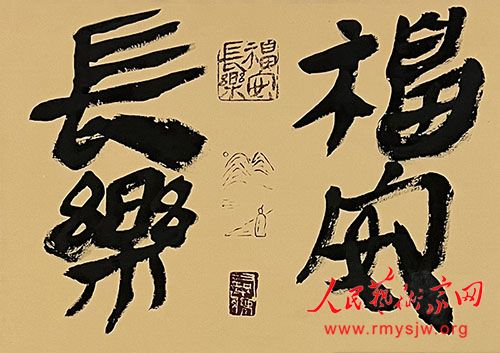 福安
長樂
福安
長樂
人民藝術家网
www.rmysjw.org